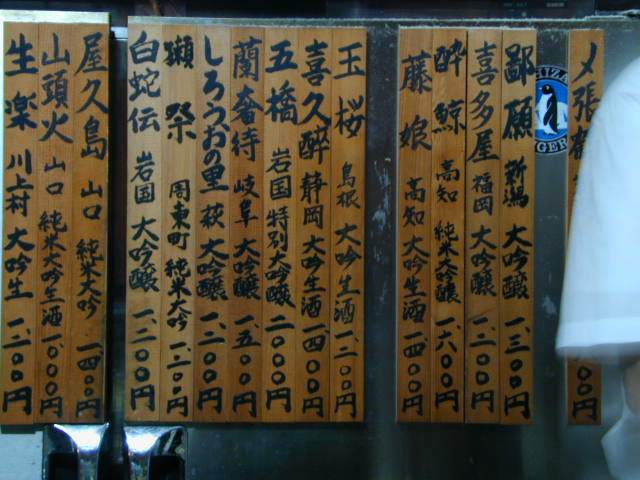 〆張
鄙願 新潟 大吟醸 一、三〇〇円
喜多屋 福岡 大吟醸 一、二〇〇円
酔鯨 高知 純米大吟醸 一、六〇〇円
藤娘 高知 大吟生酒 一、四〇〇円
玉桜 島根 大吟生酒 一、二〇〇円
喜久酔 静岡 大吟生酒 一、四〇〇円
五橋 岩国 特別大吟醸 二、〇〇〇円
蘭奢待 岐阜 大吟醸 一、五〇〇円
しろうおの里 萩 大吟醸 一、二〇〇円
獺祭 周東町 純米大吟 一、二〇〇円
白蛇伝 岩国 大吟醸 一、二〇〇円
屋久島 山口 純米大吟 一、四〇〇円
山頭火 山口 純米大吟生酒 一、〇〇〇円
生楽 川上村 大吟生 一、二〇〇円